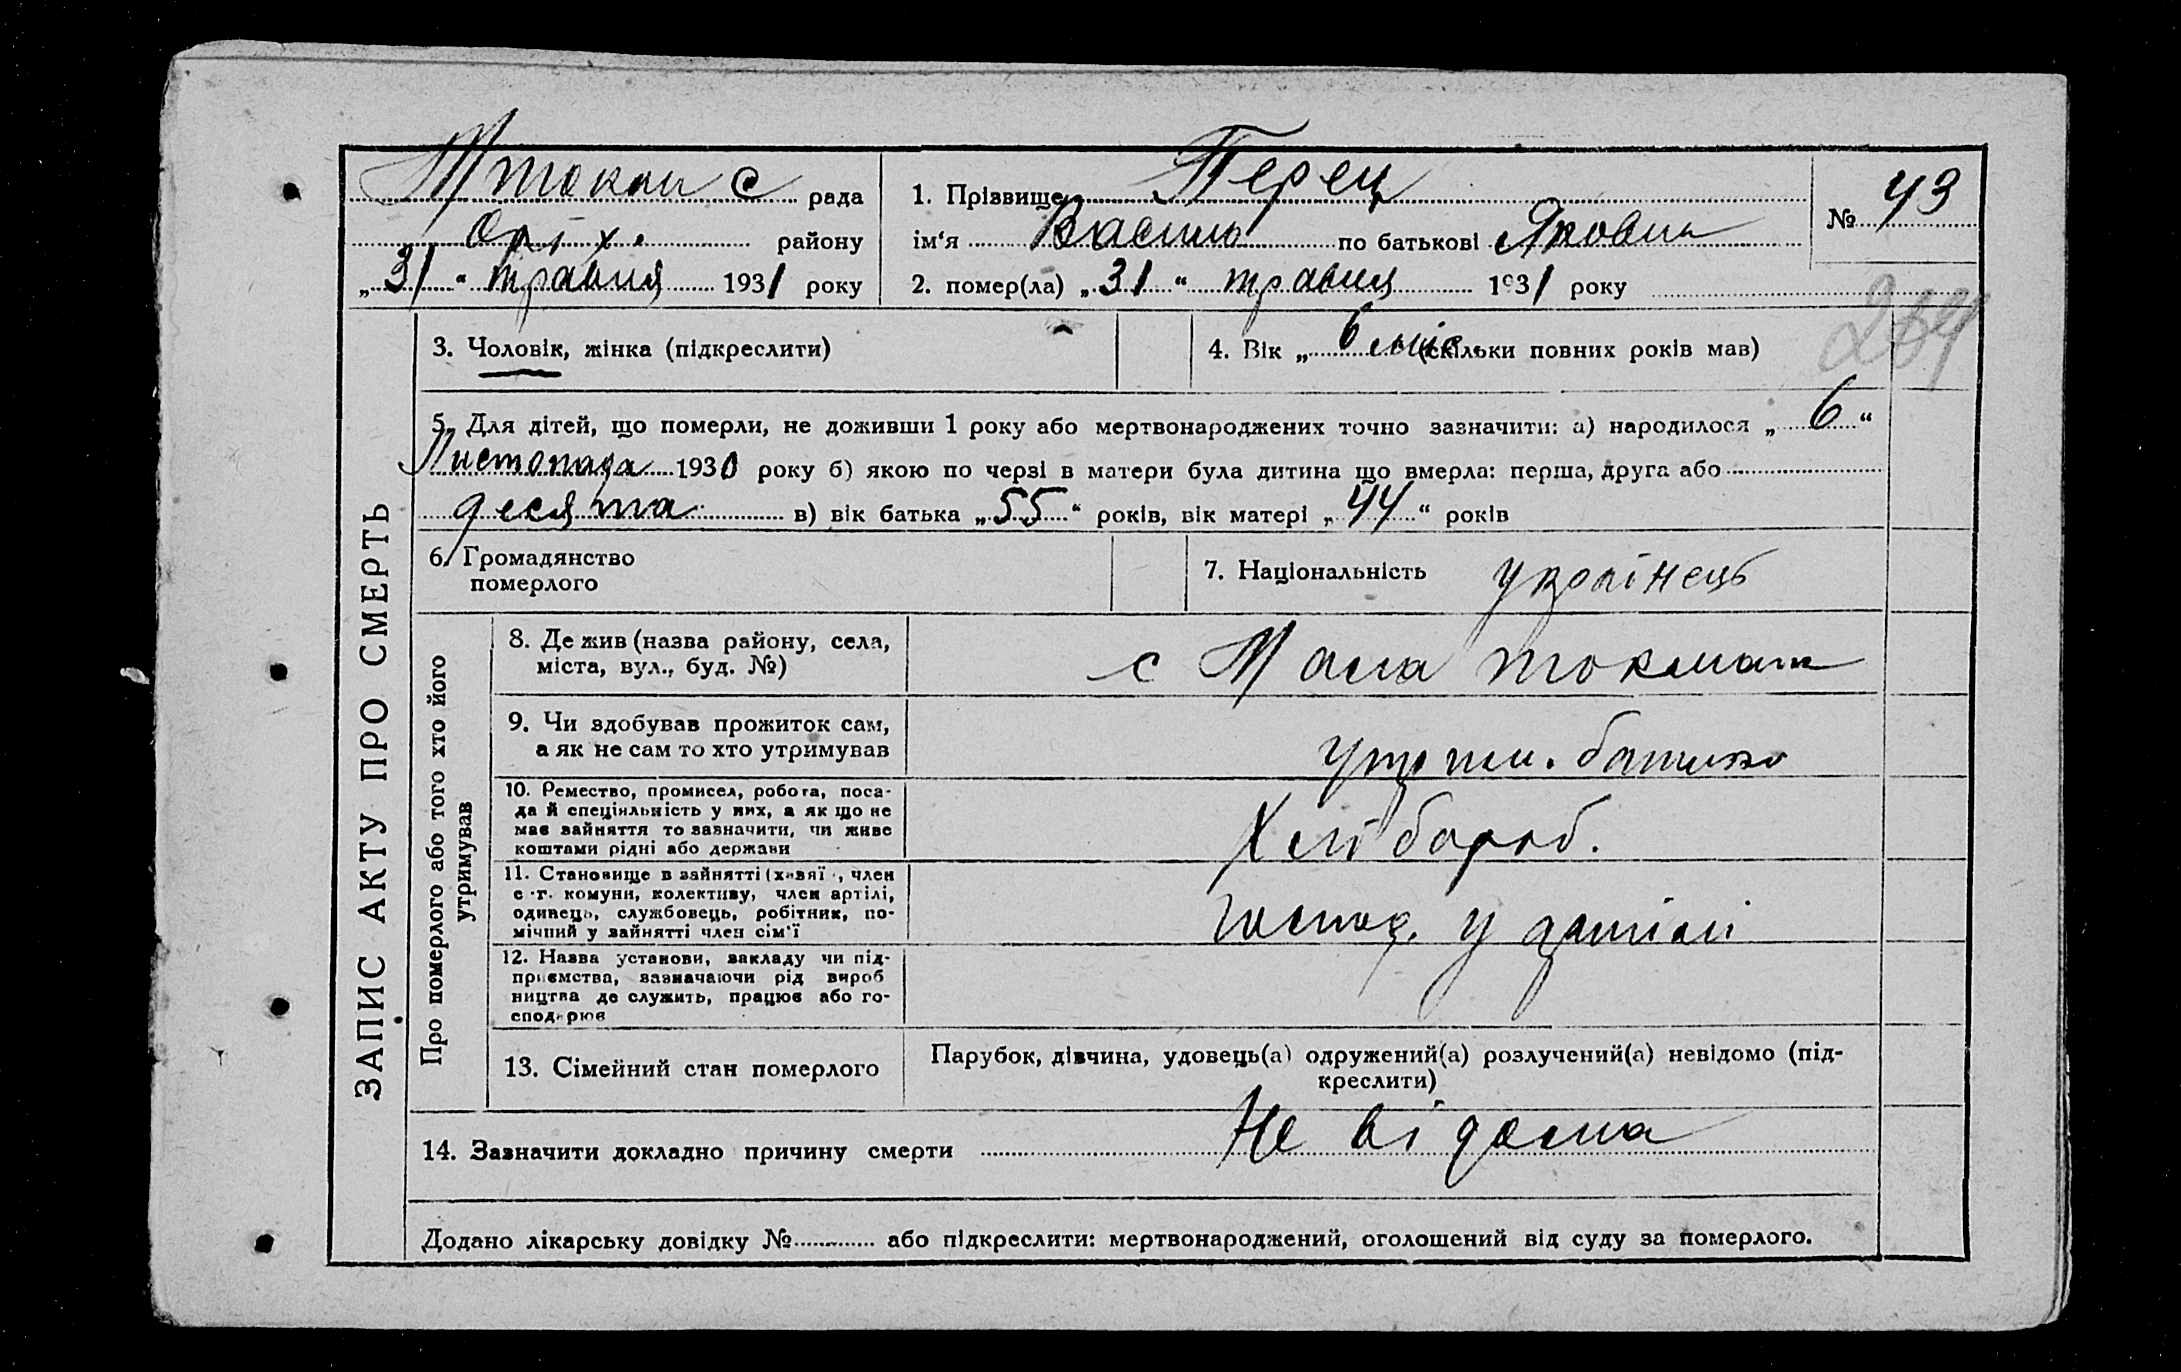 Мтокм с рада
Оріх. району
„31“ травня 1931 року
1. Прізвище Перец
ім‘я Василь по батькові Якович
2. помер(ла) „31“ травня 1931 року
№ 43
3. Чоловік, жінка (підкреслити)
4. Вік „6 міс. (скільки повних років мав)
5. Для дітей, що померли, не доживши 1 року або мертвонароджених точно зазначити: а) народилося „6“
Листопада 1930 року б) якою по черзі в матери була дитина що вмерла: перша, друга або
десята в) вік батька „55“ років, вік матері „44“ років
6. Громадянство
померлого
7. Національність українець
ЗАПИС АКТУ ПРО СМЕРТЬ
Про померлого або того хто його
утримував
8. Де жив (назва району, села,
міста, вул., буд. №)
с Мала токмач
9. Чи здобував прожиток сам,
а як не сам то хто утримував
утрим. батько
10. Ремество, промисел, робота, поса-
да й спеціяльність у них, а як що не
має зайняття то зазначити, чи живе
коштами рідні або держави
Хлібороб.
11. Становище в зайнятті (хазяї, член
с.-г. комуни, колективу, член артілі,
одинець, службовець, робітник, по-
мічний у зайнятті член сім'ї
господ. у артілі
12. Назва установи, закладу чи під-
приємства, зазначаючи рід вироб
ництва де служить, працює або го-
сподарює
13. Сімейний стан померлого
Парубок, дівчина, удовець(а) одружений(а) розлучений(а) невідомо (під-
креслити)
14. Зазначити докладно причину смерти Не відома
Додано лікарську довідку № або підкреслити: мертвонароджений, оголошений від суду за померлого.